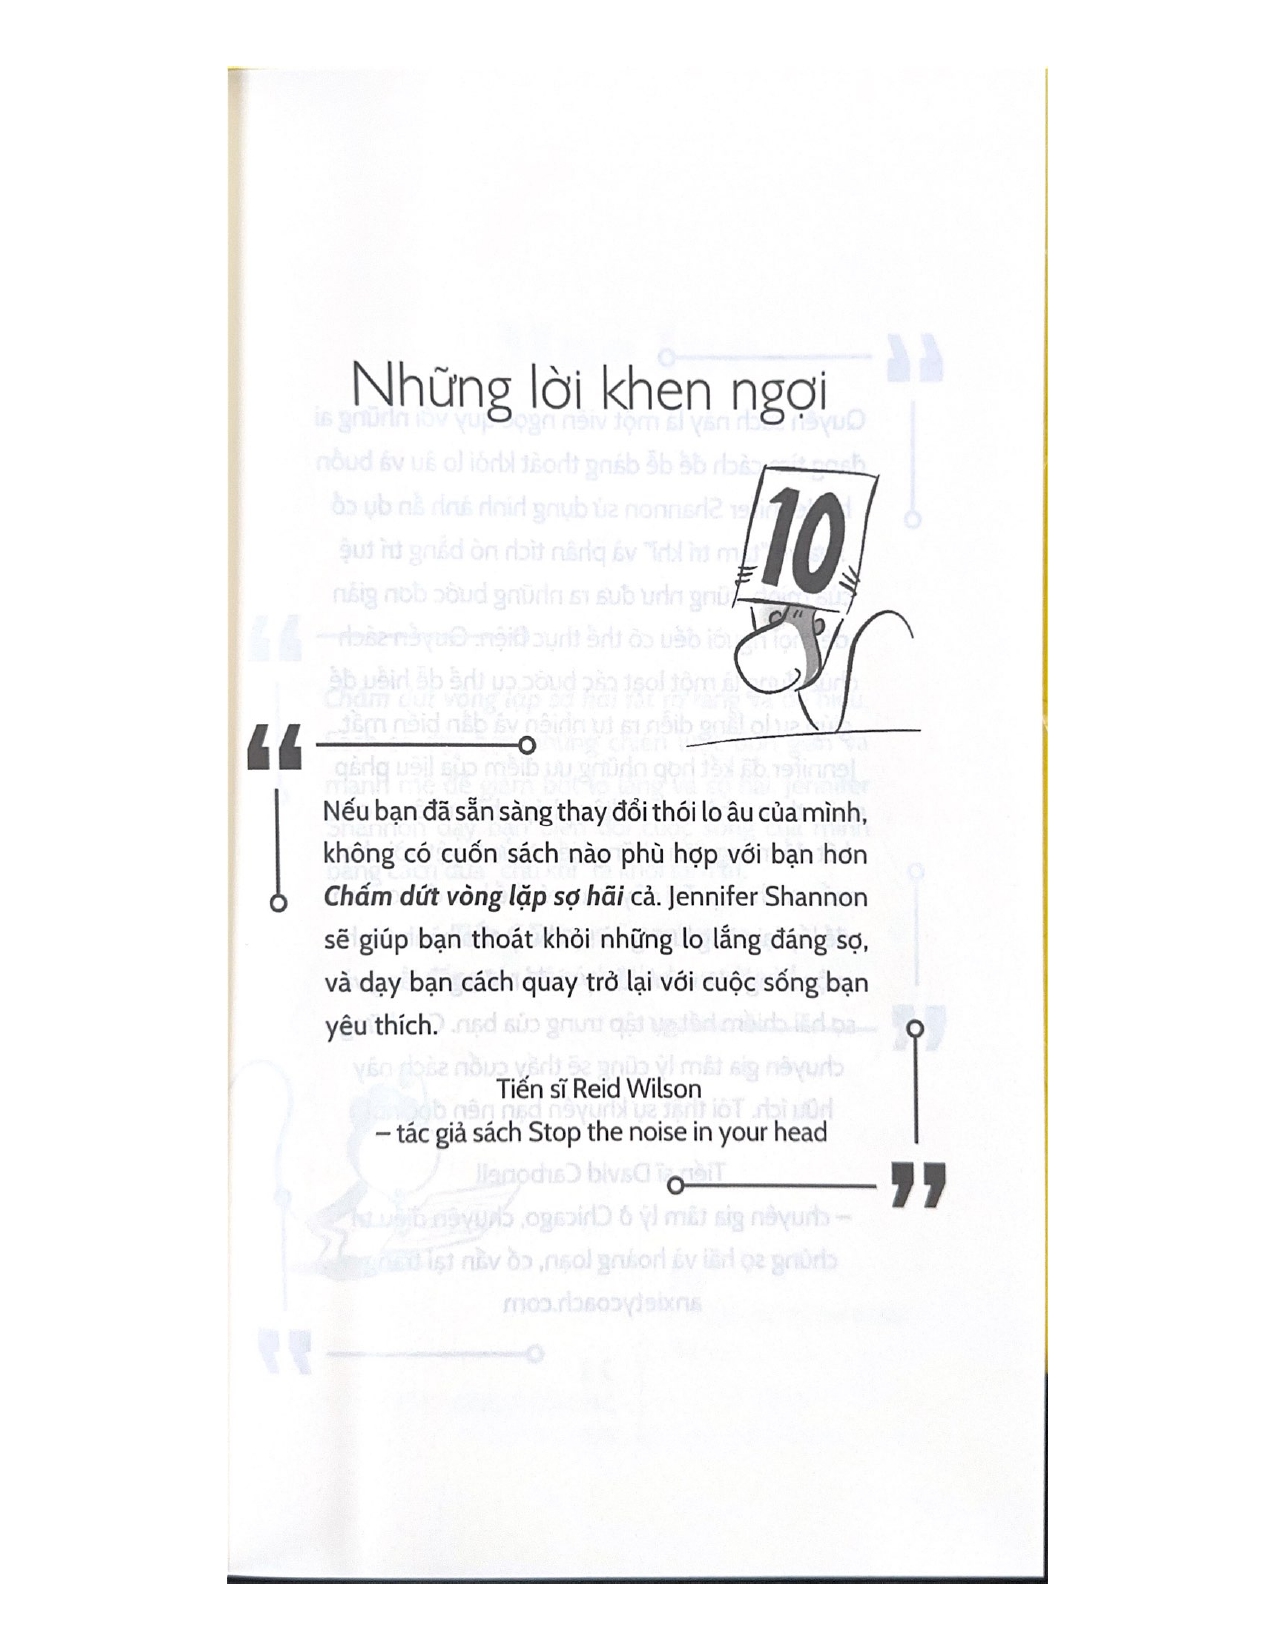 Những lời khen ngợi
10
“
Nếu bạn đã sẵn sàng thay đổi thói lo âu của mình,
không có cuốn sách nào phù hợp với bạn hơn
Chấm dứt vòng lặp sợ hãi cả. Jennifer Shannon
sẽ giúp bạn thoát khỏi những lo lắng đáng sợ,
và dạy bạn cách quay trở lại với cuộc sống bạn
yêu thích.
Tiến sĩ Reid Wilson
– tác giả sách Stop the noise in your head
”